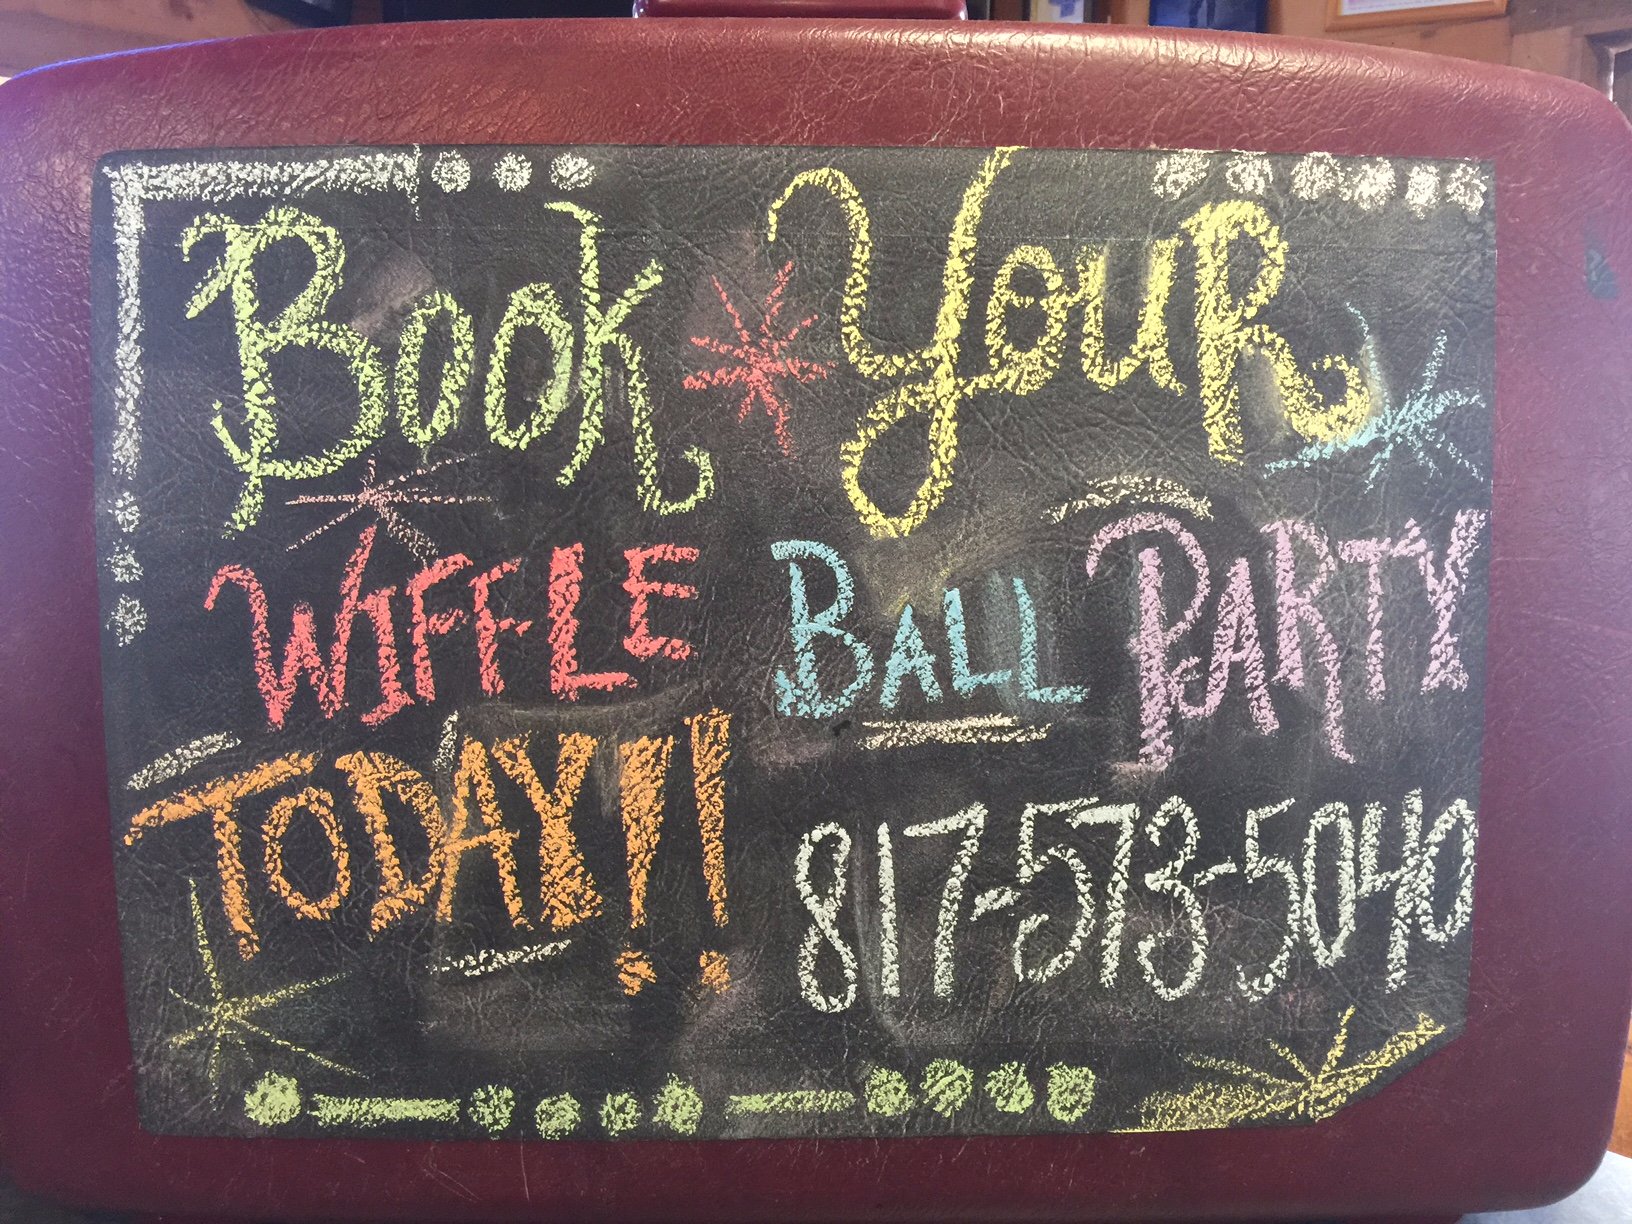 Book YouR
WIFFLE BALL PARTY
TODAY!!
817-573-5040